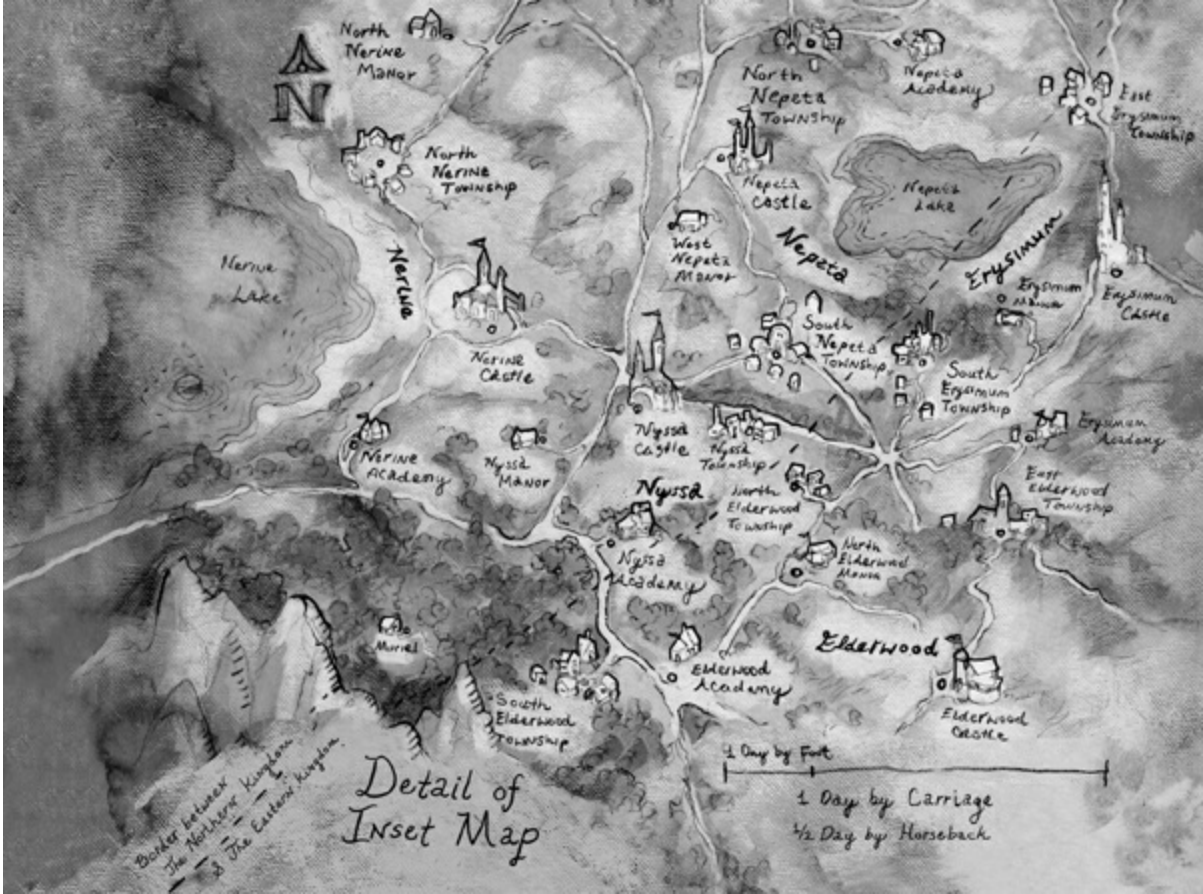 North
Nerine
Manor
N
North
Nerine
Township
Nerine
Lake
Nerine
Nerine
Castle
Nerine
Academy
North
Nepeta
Township
Nepeta
Academy
East
Erysimum
Township
Nepeta
Castle
Nepeta
Lake
West
Nepeta
Manor
Nepeta
Erysimum
Erysimum
Manor
Erysimum
Castle
South
Nepeta
Township
South
Erysimum
Township
Erysimum
Academy
Nyssa
Castle
Nyssa
Township
Nyssa
Manor
Nyssa
Nyssa
Academy
North
Elderwood
Township
East
Elderwood
Township
North
Elderwood
Manor
Muriel
Elderwood
Elderwood
Academy
Elderwood
Castle
South
Elderwood
Township
Border between
The Northern Kingdom
& The Eastern Kingdom
Detail of
Inset Map
1 Day by Foot
1 Day by Carriage
1/2 Day by Horseback